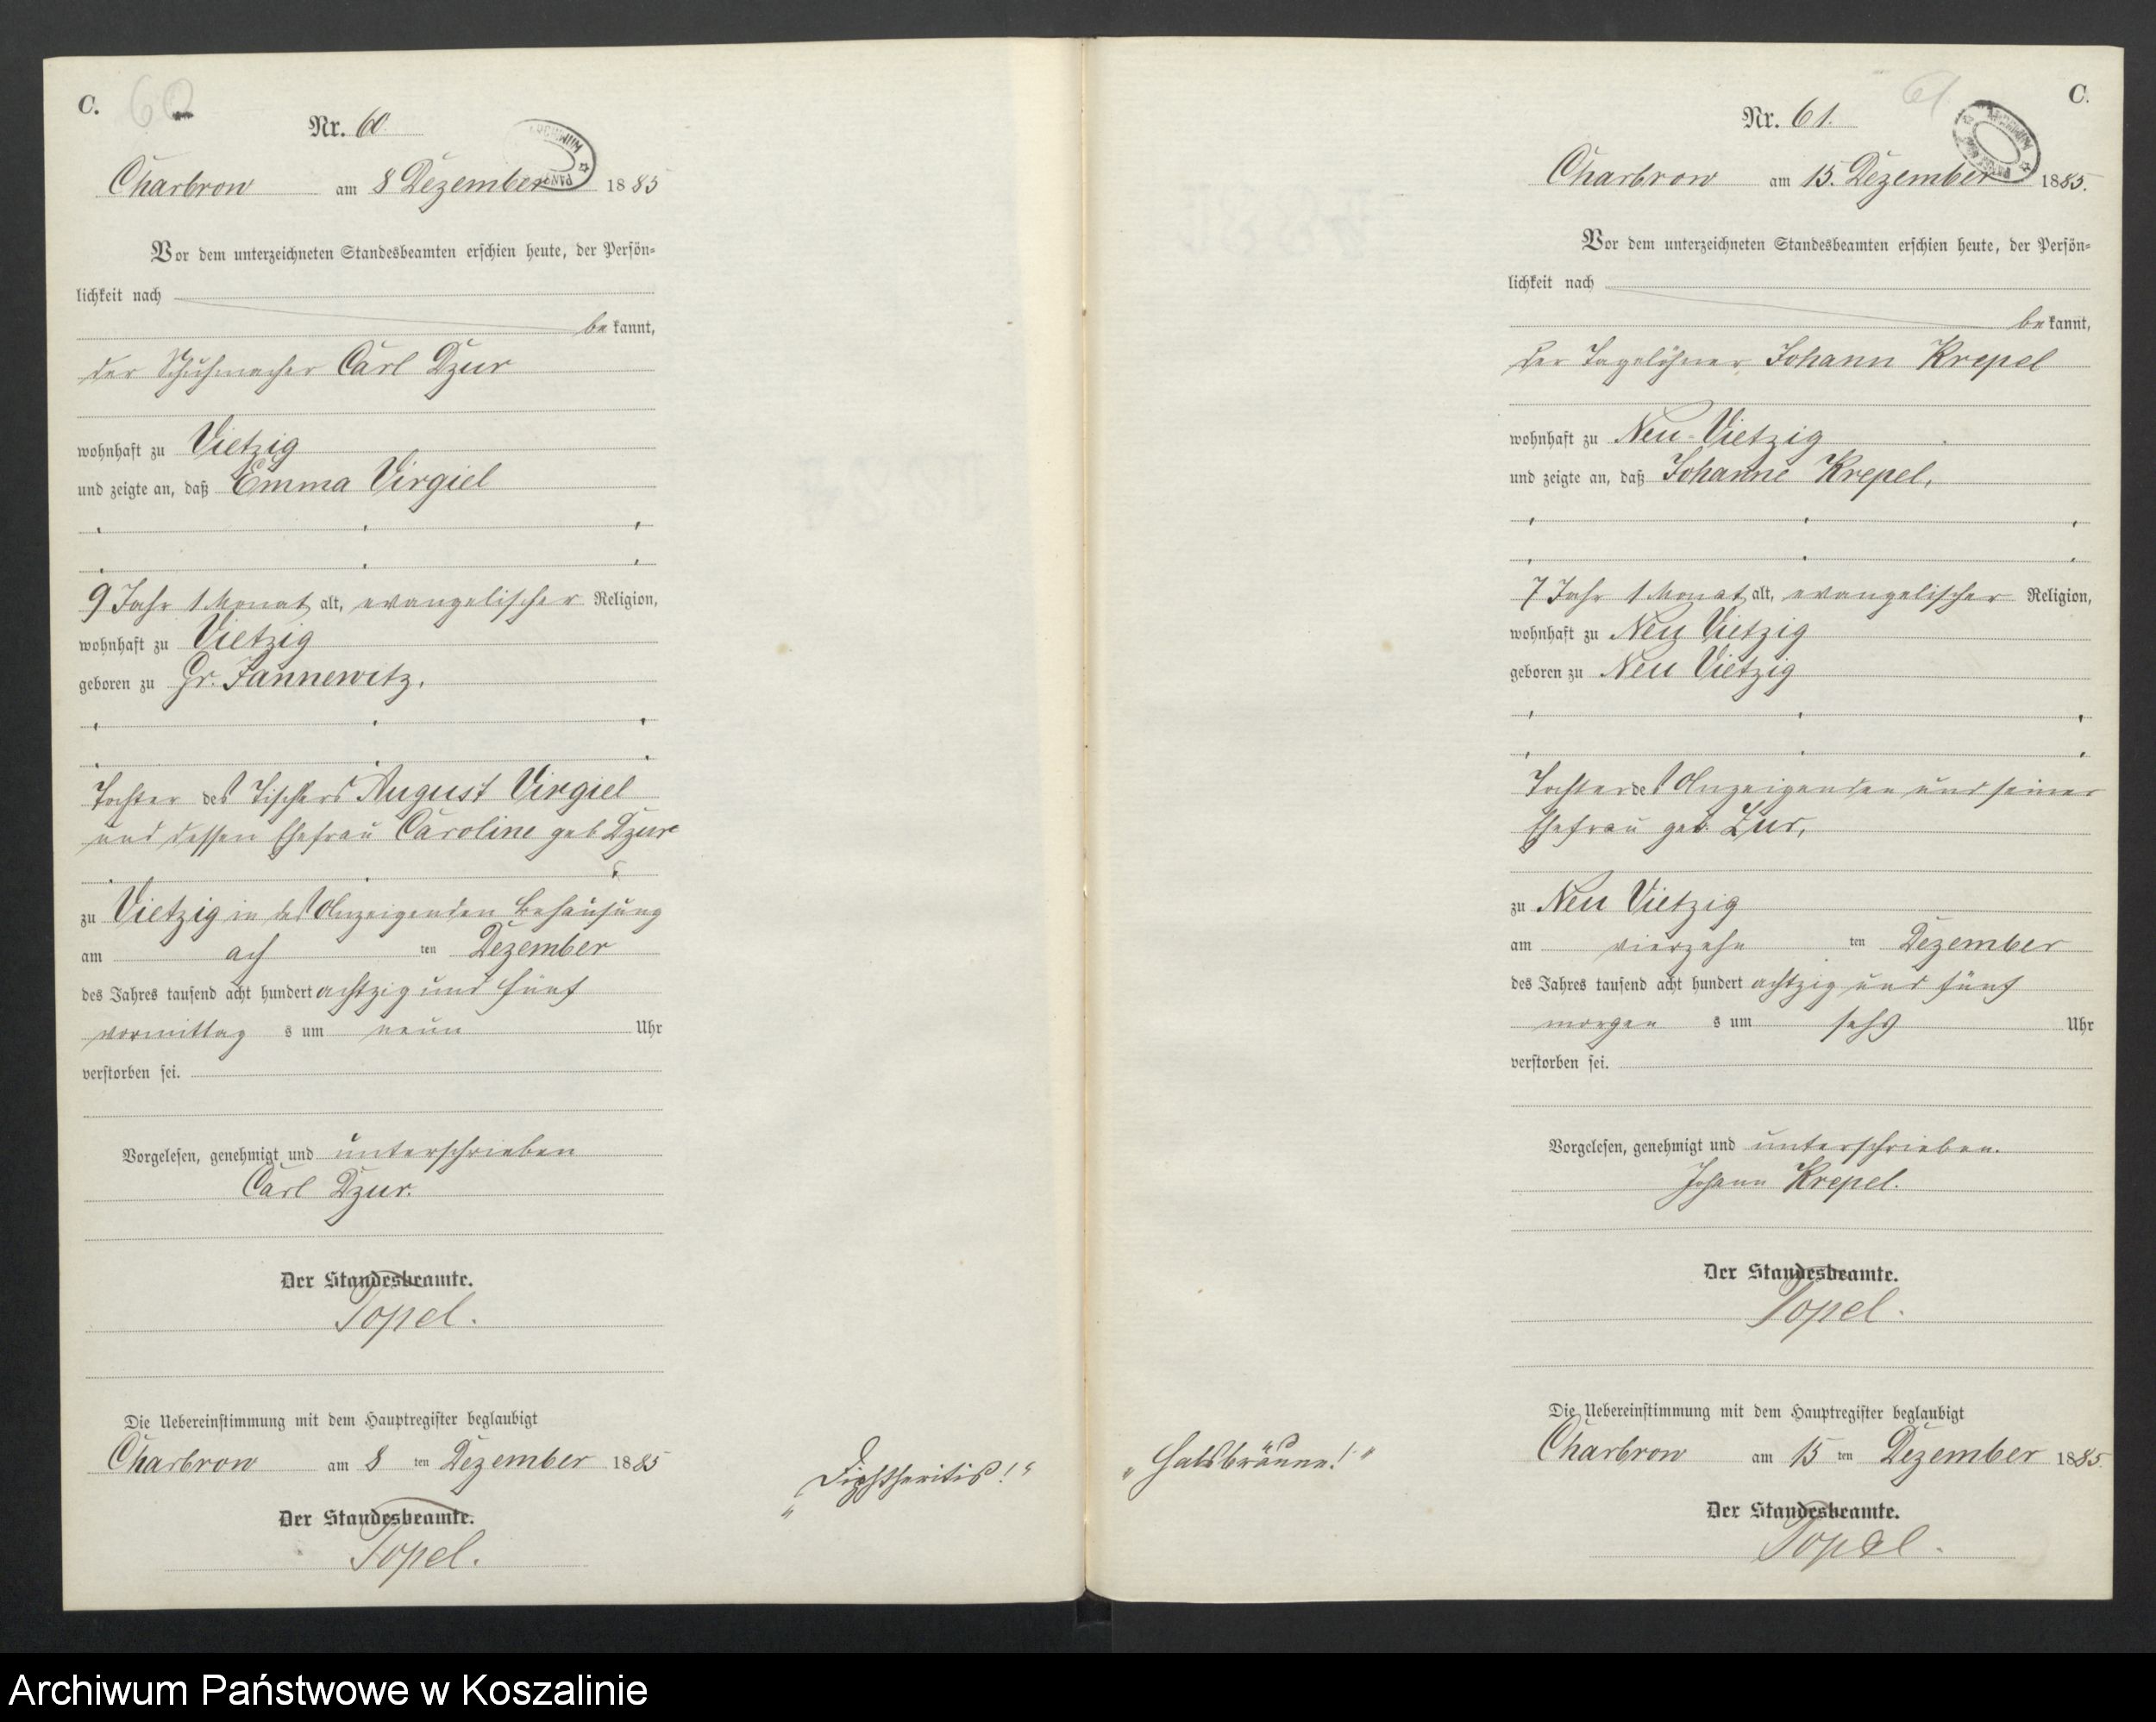 C.
60
Nr. 60.
Charbrow am 8 Dezember 1885
Vor dem unterzeichneten Standesbeamten erschien heute, der Persön-
lichkeit nach
be kannt,
der Schuhmacher Carl Dzur
wohnhaft zu Vietzig
und zeigte an, daß Emma Virgiel
9 Jahr 1 Monat alt, evangelischer Religion,
wohnhaft zu Vietzig
geboren zu Gr. Jannewitz,
Tochter des Tischlers August Virgiel
und dessen Ehefrau Caroline geb Dzur
zu Vietzig in des Anzeigenden Behausung
am ach ten Dezember
des Jahres tausend acht hundert achtzig und fünf
vormittag s um neun Uhr
verstorben sei.
Vorgelesen, genehmigt und unterschrieben
Carl Dzur.
Der Standesbeamte.
Topel.
Die Uebereinstimmung mit dem Hauptregister beglaubigt
Charbrow am 8 ten Dezember 1885
Der Standesbeamte.
Topel.
„Diphtheritis!“
C.
61.
Nr. 61.
Charbrow am 15. Dezember 1885.
Vor dem unterzeichneten Standesbeamten erschien heute, der Persön-
lichkeit nach
be kannt,
der Tagelöhner Johann Krepel
wohnhaft zu Neu-Vietzig
und zeigte an, daß Johanne Krepel,
7 Jahr 1 Monat alt, evangelischer Religion,
wohnhaft zu Neu Vietzig
geboren zu Neu Vietzig
Tochter des Anzeigenden und seiner
Ehefrau geb. Zur,
zu Neu Vietzig
am vierzehn ten Dezember
des Jahres tausend acht hundert achtzig und fünf
morgen s um sechs Uhr
verstorben sei.
Vorgelesen, genehmigt und unterschrieben.
Johann Krepel.
Der Standesbeamte.
Topel.
Die Uebereinstimmung mit dem Hauptregister beglaubigt
Charbrow am 15 ten Dezember 1885.
Der Standesbeamte.
Topel.
„Halsbräune!“
Archiwum Państwowe w Koszalinie